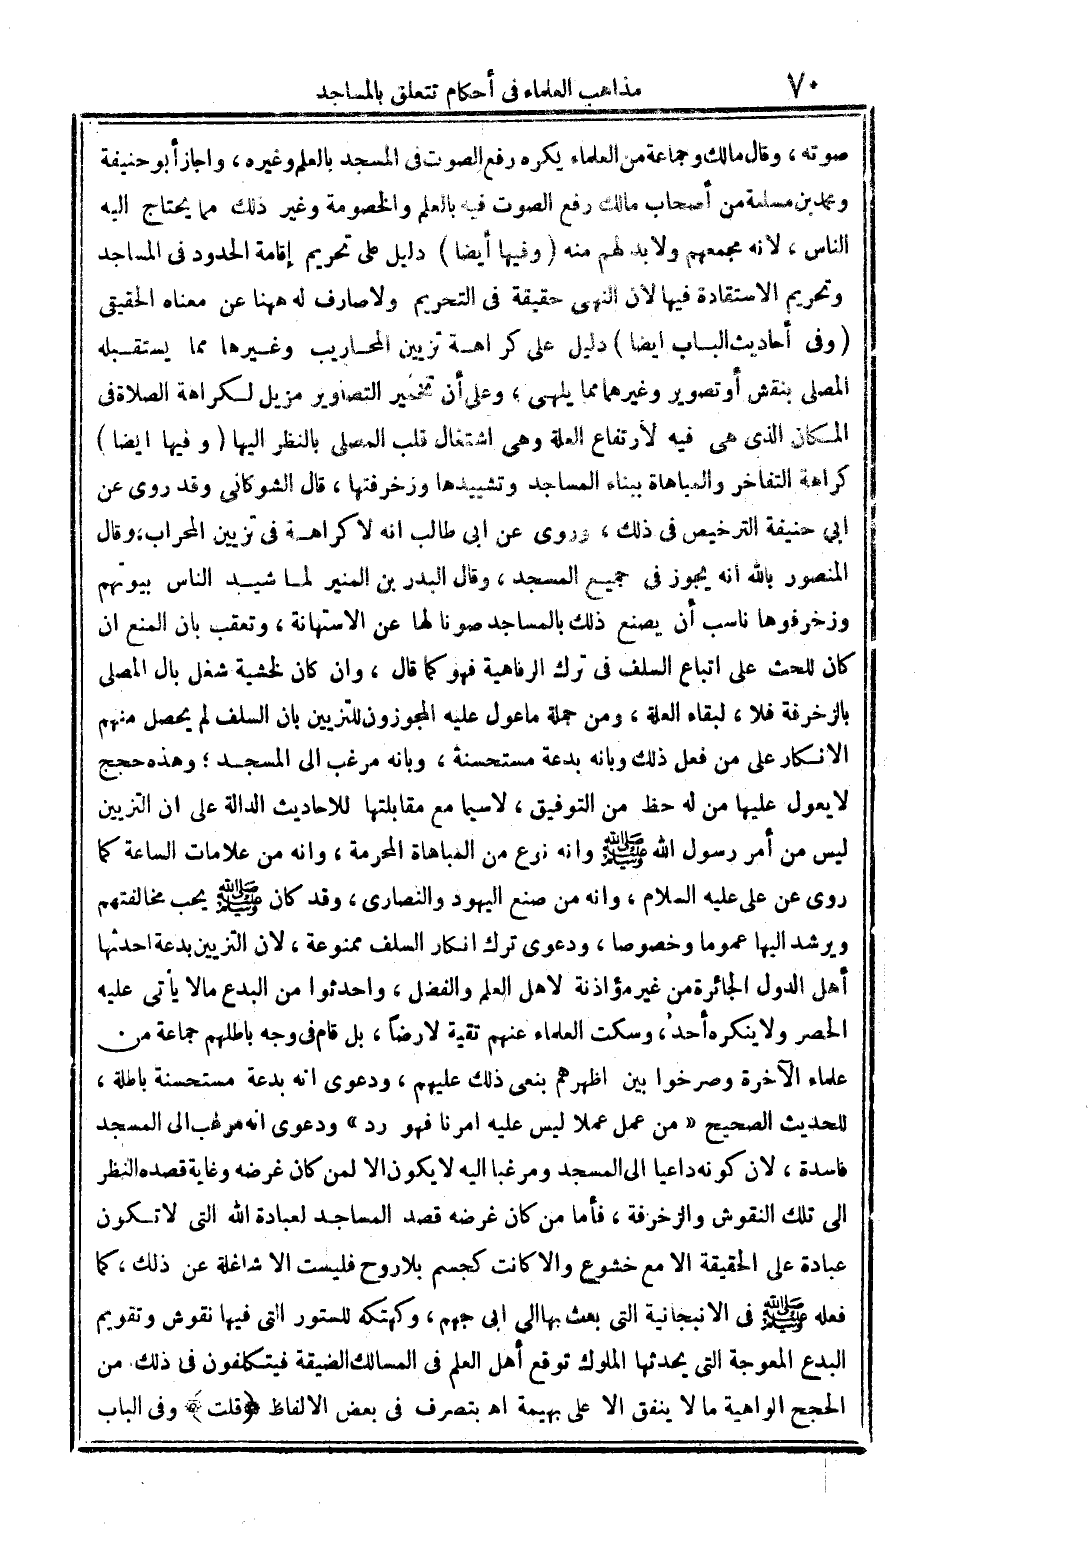 ٧٠ مذاهب العلماء فى أحكام تتعلق بالمساجد
صوته ، وقال مالك وجماعة من العلماء يكره رفع الصوت فى المسجد بالعلم وغيره ، واجاز أبو حنيفة
ومحمد بن مسلمة من أصحاب مالك رفع الصوت فيه بالعلم والخصومة وغير ذلك مما يحتاج اليه
الناس ، لانه مجمعهم ولابد لهم منه ( وفيها أيضا ) دليل على تحريم إقامة الحدود فى المساجد
وتحريم الاستقادة فيها لأن النهى حقيقة فى التحريم ولا صارف له ههنا عن معناه الحقيقى
( وفى أحاديث الباب ايضا ) دليل على كراهة تزيين المحاريب وغيرها مما يستقبله
المصلى بنقش أو تصوير وغيرهما مما يلهى ؛ وعلى أن تخمير التصاوير مزيل لكراهة الصلاة فى
المكان الذى هى فيه لارتفاع العلة وهى اشتغال قلب المصلى بالنظر اليها ( وفيها ايضا )
كراهة التفاخر والمباهاة ببناء المساجد وتشييدها وزخرفتها ، قال الشوكانى وقد روى عن
ابى حنيفة الترخيص فى ذلك ، وروى عن ابى طالب انه لا كراهة فى تزيين المحراب ؛ وقال
المنصور بالله انه يجوز فى جميع المسجد ، وقال البدر بن المنير لما شيد الناس بيوتهم
وزخرفوها ناسب أن يصنع ذلك بالمساجد صونا لها عن الاستهانة ، وتعقب بان المنع ان
كان للحث على اتباع السلف فى ترك الرفاهية فهو كما قال ، وان كان لخشية شغل بال المصلى
بالزخرفة فلا ، لبقاء العلة ، ومن جملة ما عول عليه المجوزون للتزيين بان السلف لم يحصل منهم
الانكار على من فعل ذلك وبانه بدعة مستحسنة ، وبانه مرغب الى المسجد ؛ وهذه حجج
لا يعول عليها من له حظ من التوفيق ، لاسيما مع مقابلتها للاحاديث الدالة على ان التزيين
ليس من أمر رسول الله ﷺ وانه نوع من المباهاة المحرمة ، وانه من علامات الساعة كما
روى عن على عليه السلام ، وانه من صنع اليهود والنصارى ، وقد كان ﷺ يحب مخالفتهم
ويرشد اليها عموما وخصوصا ، ودعوى ترك انكار السلف ممنوعة ، لان التزيين بدعة احدثها
أهل الدول الجائرة من غير مؤاذنة لاهل العلم والفضل ، واحدثوا من البدع مالا يأتى عليه
الحصر ولا ينكره أحد ، وسكت العلماء عنهم تقية لا رضاً ، بل قام فى وجه باطلهم جماعة من
علماء الآخرة وصرخوا بين اظهرهم بنعى ذلك عليهم ، ودعوى انه بدعة مستحسنة باطلة ،
للحديث الصحيح « من عمل عملا ليس عليه امرنا فهو رد » ودعوى انه مرغب الى المسجد
فاسدة ، لان كونه داعيا الى المسجد ومرغبا اليه لا يكون الا لمن كان غرضه وغاية قصده النظر
الى تلك النقوش والزخرفة ، فأما من كان غرضه قصد المساجد لعبادة الله التى لا تكون
عبادة على الحقيقة الا مع خشوع والا كانت كجسم بلا روح فليست الا شاغلة عن ذلك ، كما
فعله ﷺ فى الانبجانية التى بعث بها الى ابى جهم ، وكهتكه للستور التى فيها نقوش وتقويم
البدع المعوجة التى يحدثها الملوك توقع أهل العلم فى المسالك الضيقة فيتكلفون فى ذلك من
الحجج الواهية ما لا ينفق الا على بهيمة اه بتصرف فى بعض الالفاظ ﴿ قلت ﴾ وفى الباب